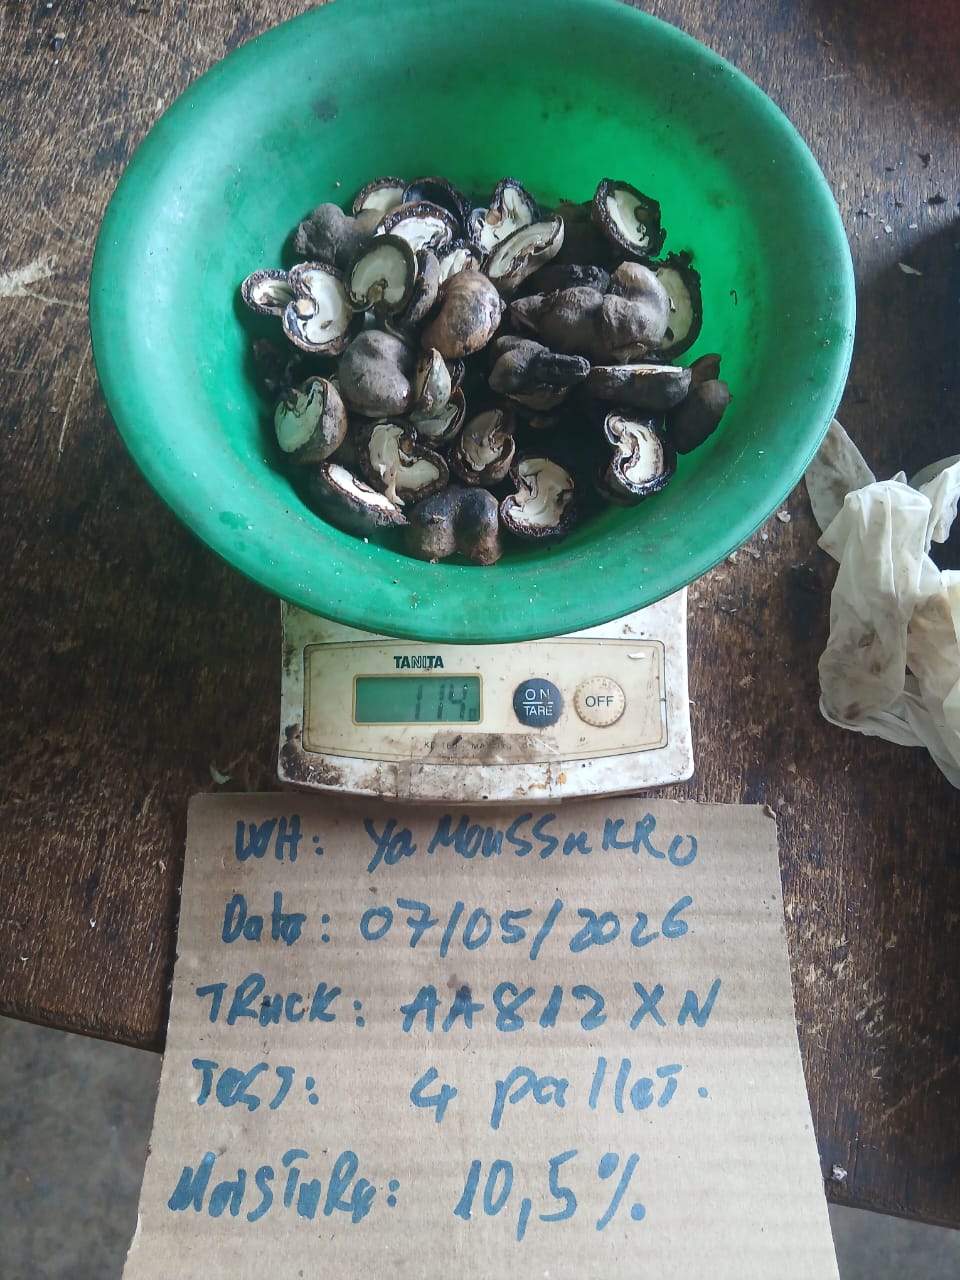 TANITA
114
ON
TARE
OFF
WH: YaMoussuKRo
Date: 07/05/2026
TRucK: AA812XN
TesT: 4 palleT.
MoisTuRe: 10,5%